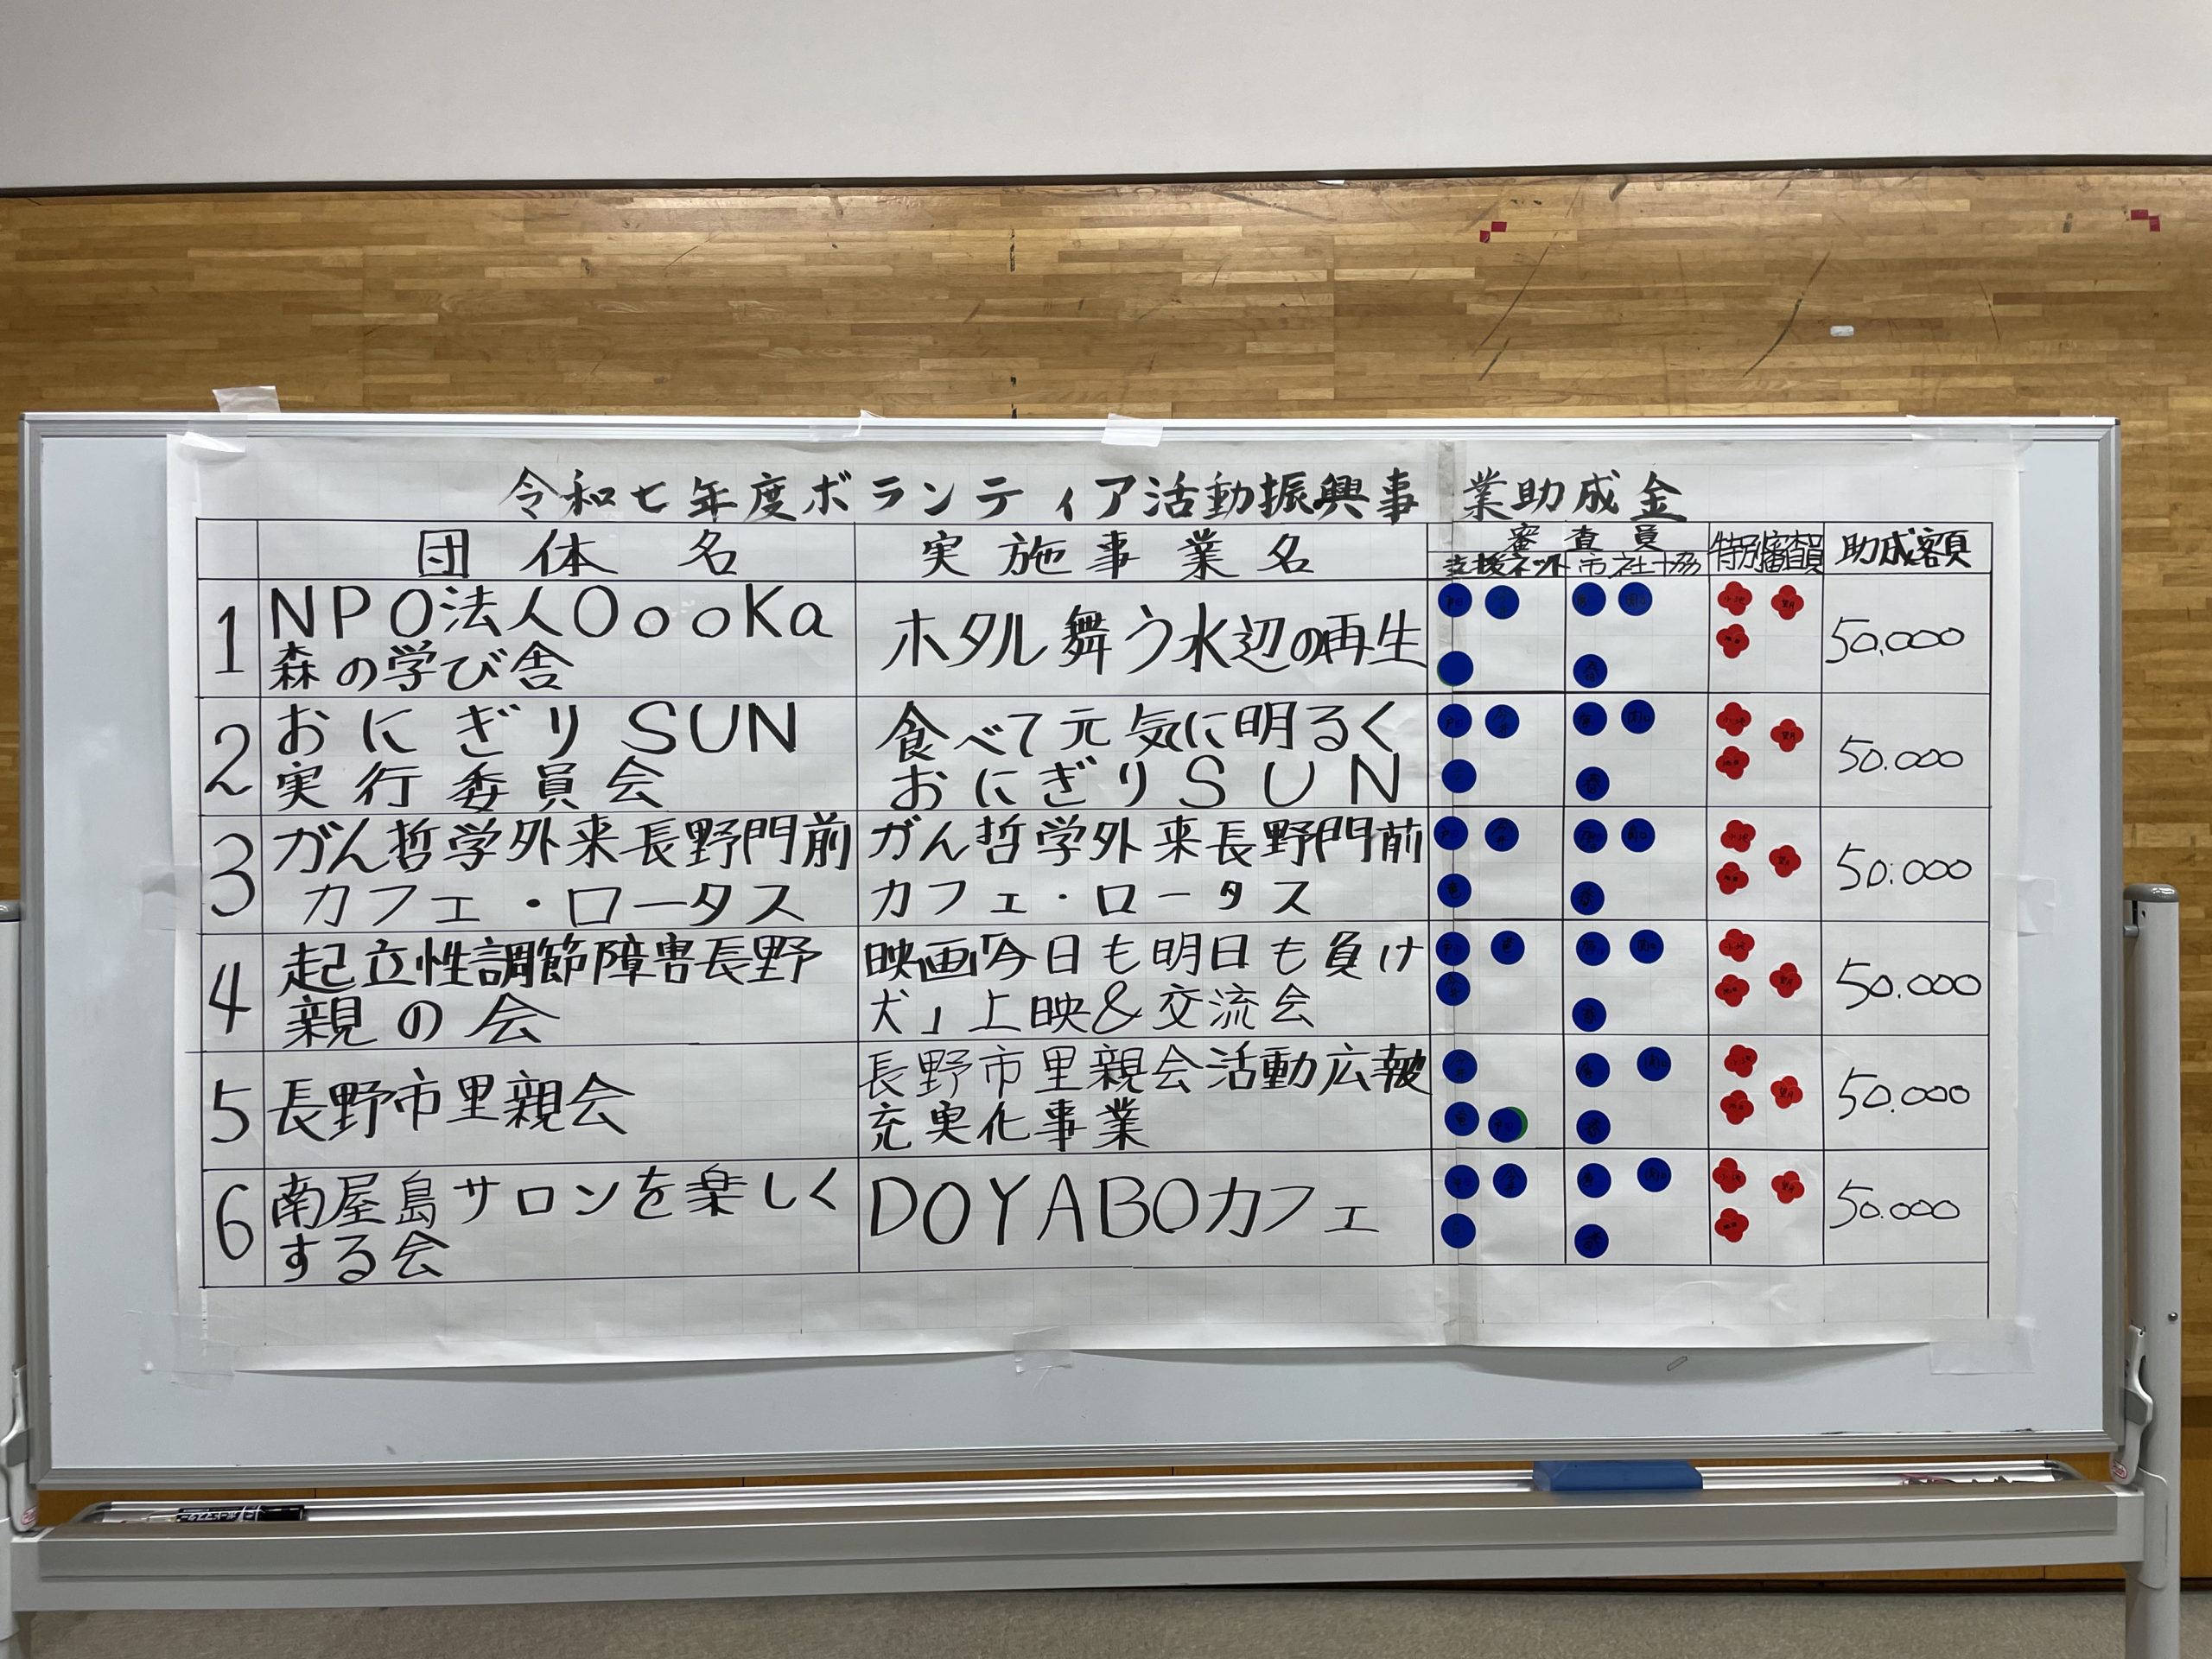 令和七年度ボランティア活動振興事業助成金
団体名 実施事業名 審査員 特別審査員 助成額
支援ネット 市社協
1 NPO法人OooKa ホタル舞う水辺の再生 50,000
森の学び舎
2 おにぎりSUN 食べて元気に明るく 50.000
実行委員会 おにぎりSUN
3 がん哲学外来長野門前 がん哲学外来長野門前 50.000
カフェ・ロータス カフェ・ロータス
4 起立性調節障害長野 映画「今日も明日も負け 50.000
親の会 犬」上映&交流会
5 長野市里親会 長野市里親会活動広報 50.000
充実化事業
6 南屋島サロンを楽しく DOYABOカフェ 50.000
する会